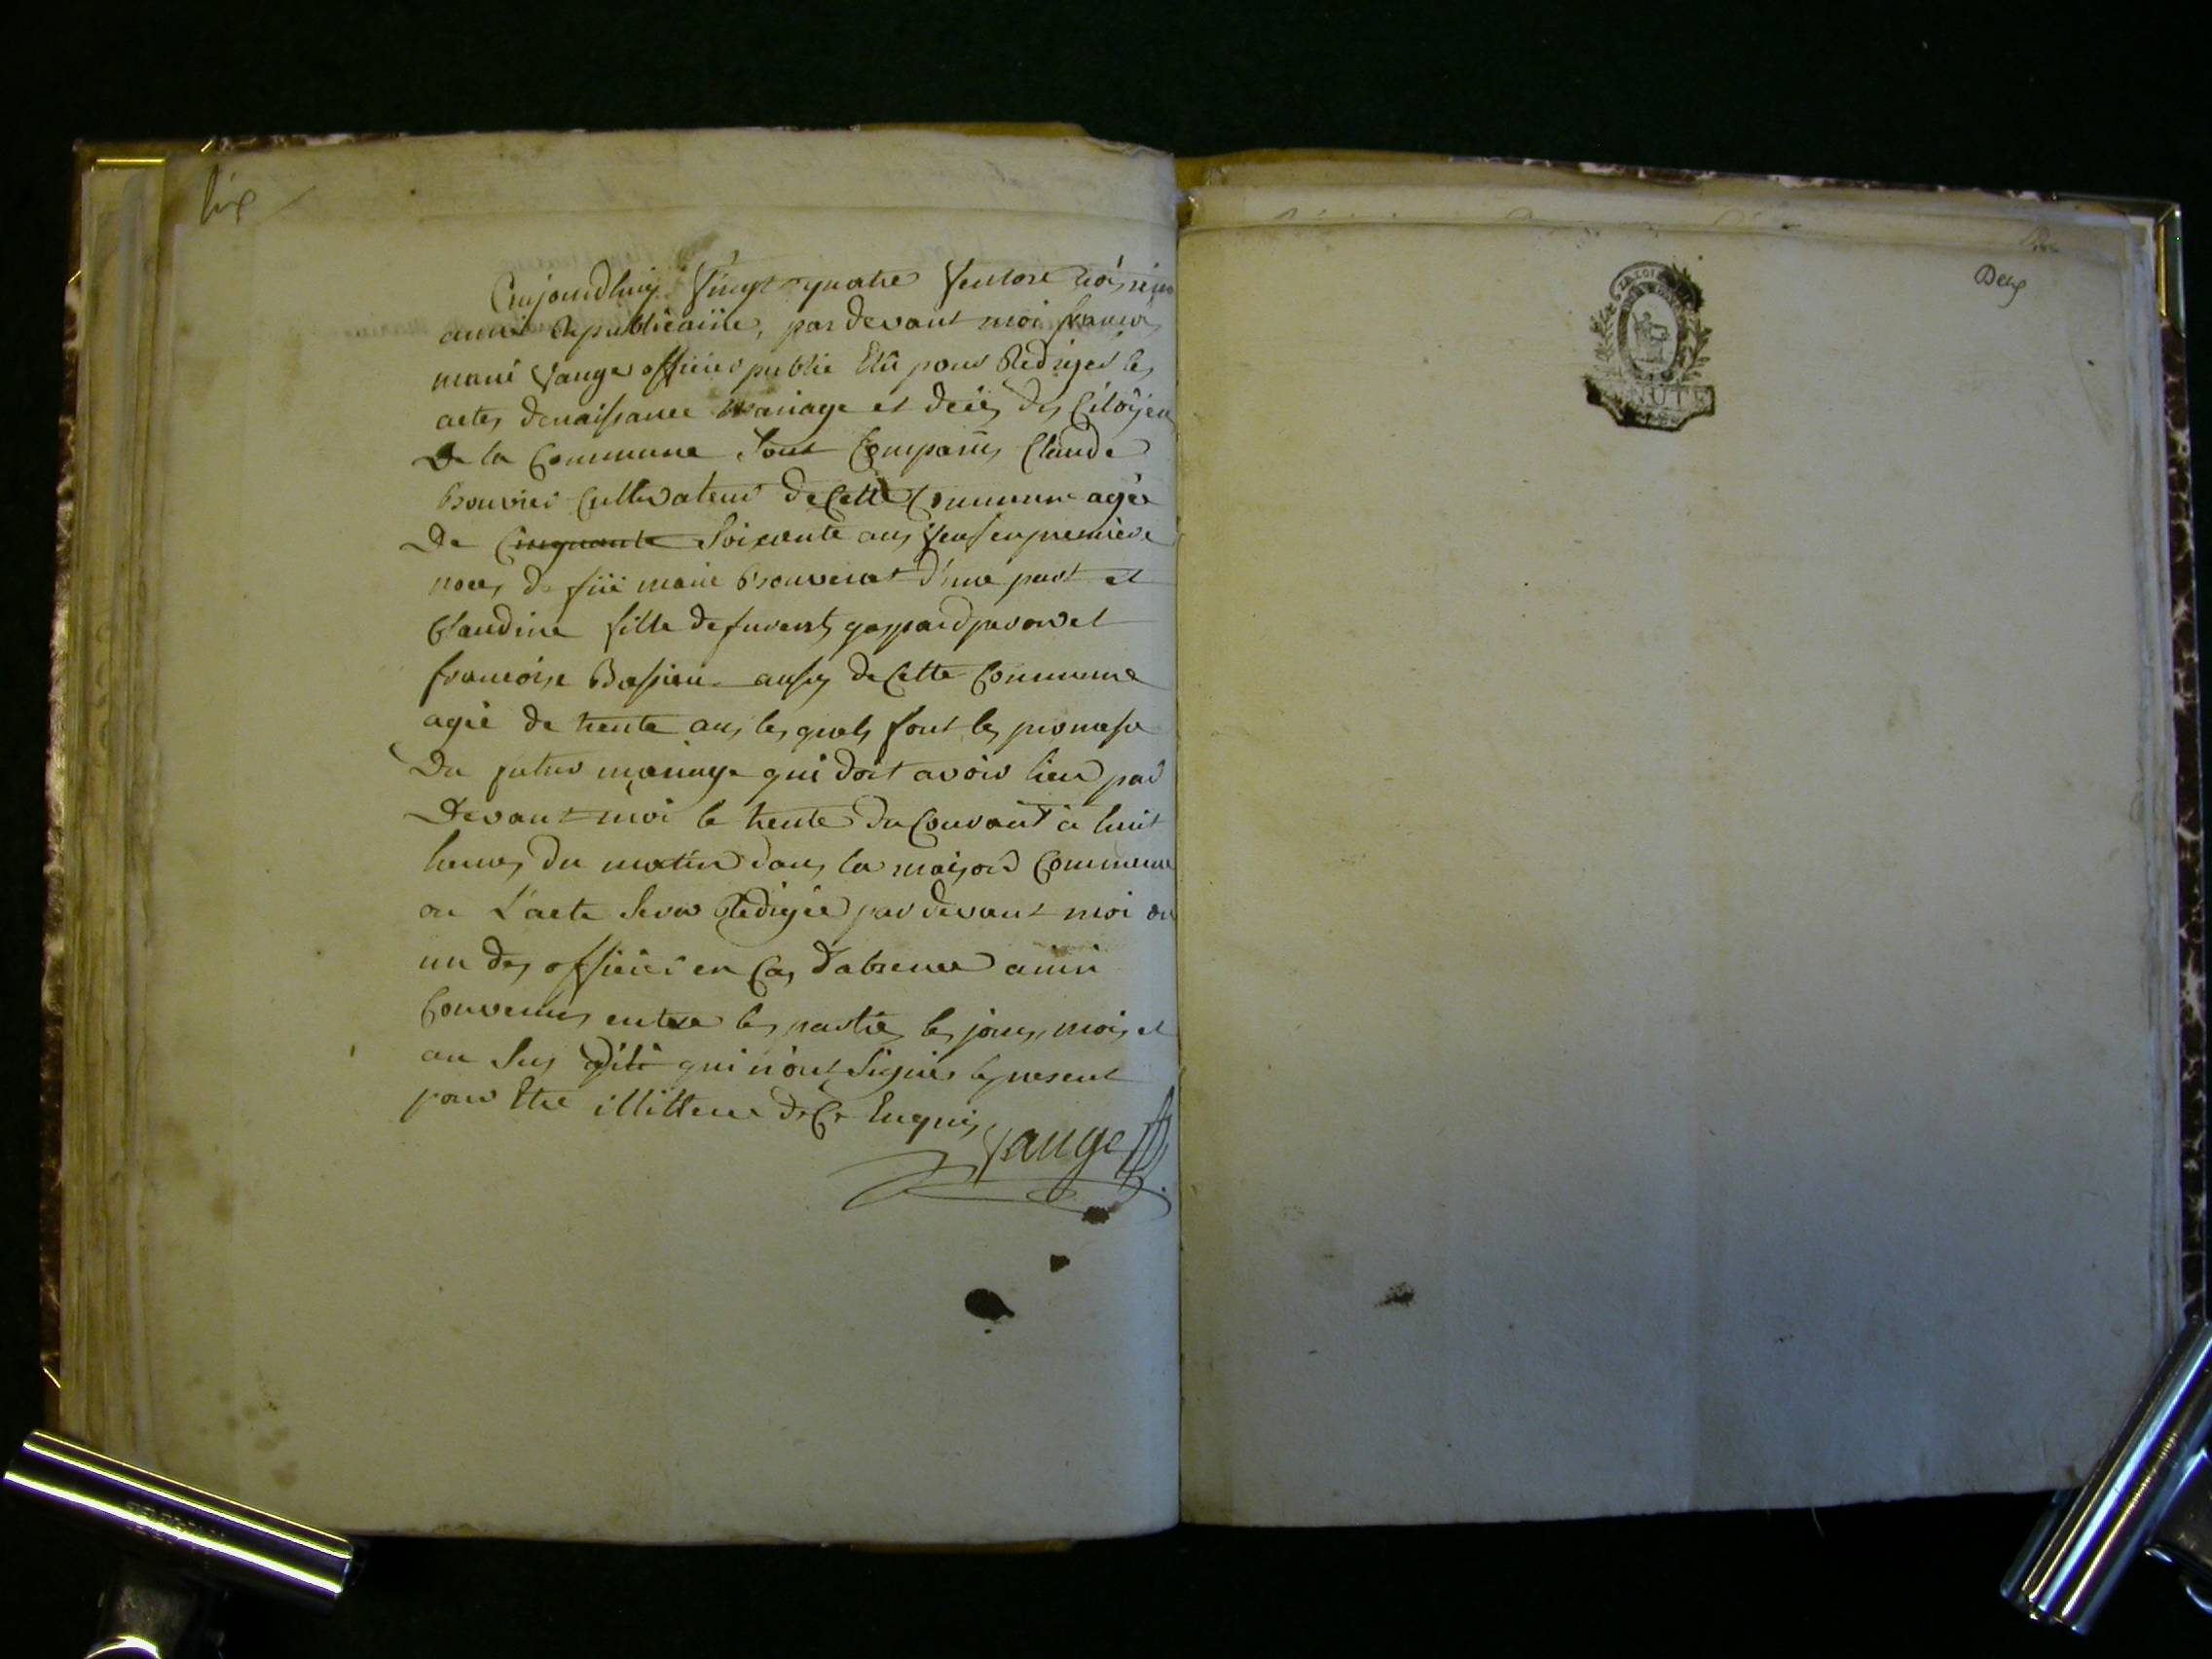 six
Cujourdhuy vingt quatre ventose troisieme
anneé Republicainne, par devant moi francois
marié vauge officier public Elû pour Rediger les
actes denaissance mariage et decés des Citoÿens
De la Commune Sont Comparus Claude
Bouvier Cultivateur de Cette Commune agée
De Cinquante Soixante ans veuf en premiere
noces de füe marie Brouverat d'une part et
Claudine fille defunents gaspard et
francoise Bassieu aussy de Cette Commune
agée de trente ans les quels font les promesse
De futur mariage qui doit avoir lieu par
Devant moi le trente du Courant a huit
heures du matin dans la maison Commune
ou L'acte Sera Redigée par devant moi ou
un des officier en Cas d'absence ainsi
Convenus entre les parties les jours, mois et
an Sus qui n'ont Signés le present
pour Etre illitteré de Ce Enquis
vauge off.
Deux
NUTE